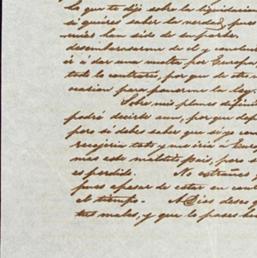 lo que te dije sobre la liquidacion
si quieres saber la verdad, pues
más han sido de su parte
desembarazarme de el y concluir
ir á dar una vuelta por Europa,
todo lo contrario, por que de otro
ocasion para ponerme la ley.
Sobre mis planes definiti
podré decirte aun, por que dep
pero si debo saber que si yo con
recojeria todo y me iria á Euro
mas este maldito pais, pero s
es perdido. No estrañes
pues apesar de estar en cont
el tiempo. A Dios desea q
tus males, y que lo pases ha